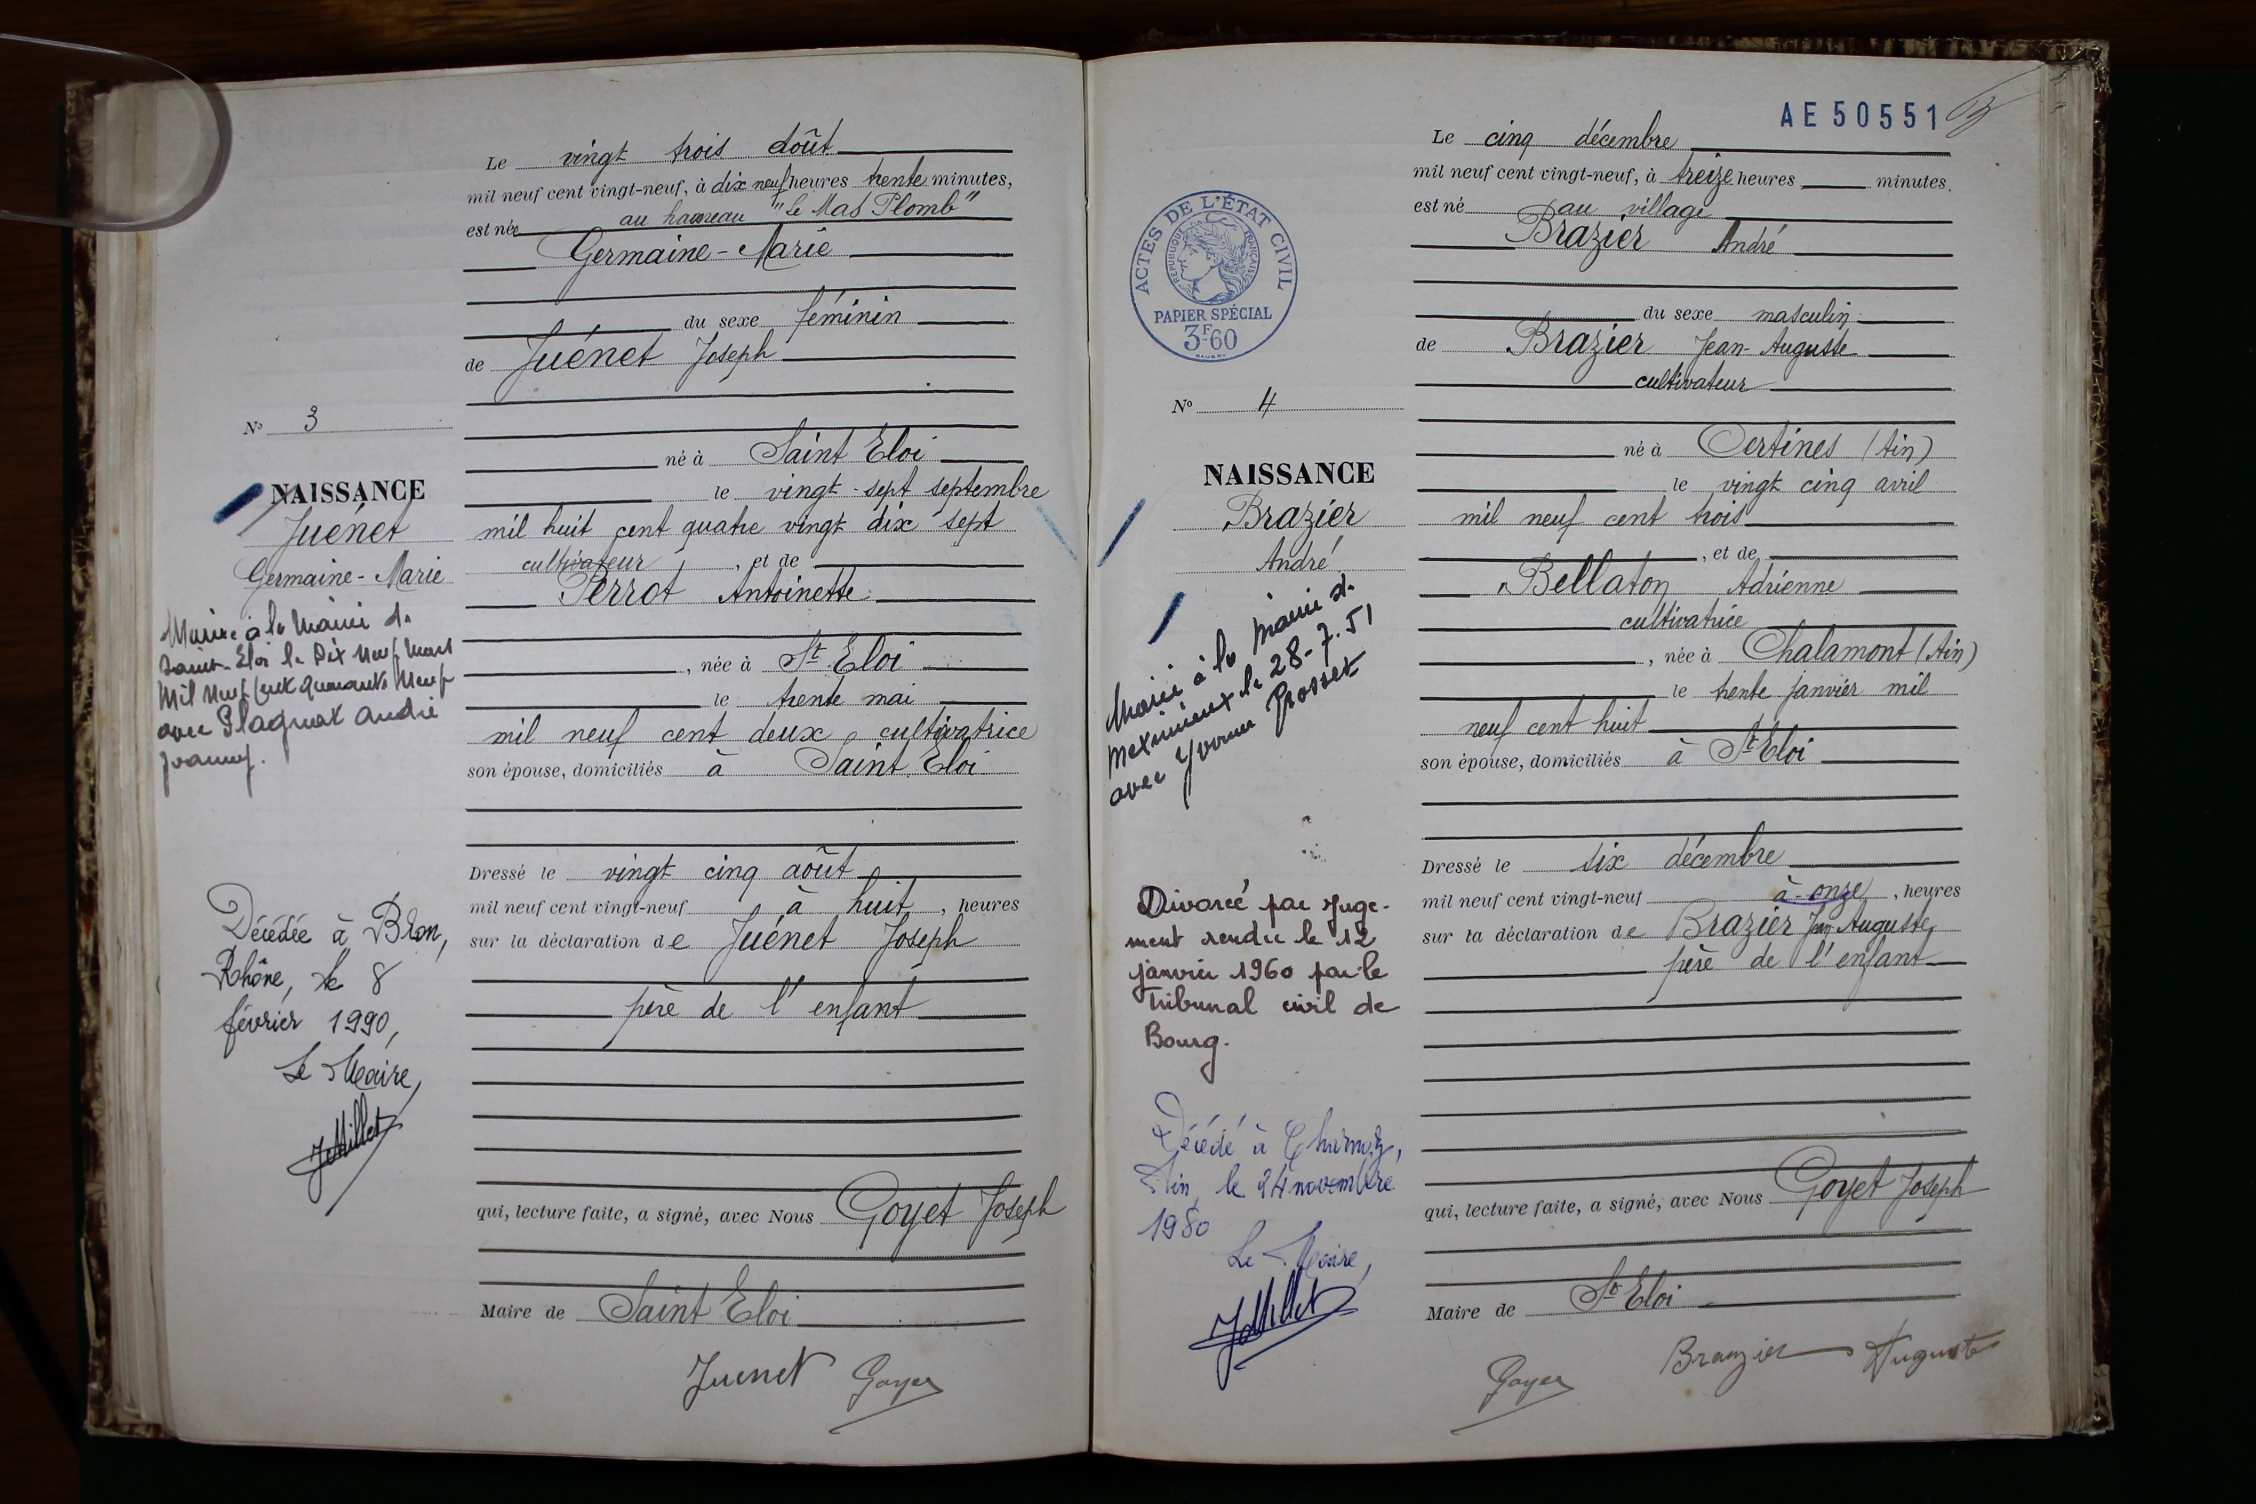 Le vingt trois août
mil neuf cent vingt-neuf, à dix neuf heures trente minutes,
est née au hameau "Le Mas Plomb"
Germaine-Marie
du sexe féminin
de Juénet Joseph
né à Saint Eloi
le vingt-sept septembre
mil huit cent quatre vingt dix sept
cultivateur, et de
Perrot Antoinette
, née à St Eloi
le trente mai
mil neuf cent deux, cultivatrice
son épouse, domiciliés à Saint Eloi
Dressé le vingt cinq août
mil neuf cent vingt-neuf à huit, heures
sur la déclaration de Juénet Joseph
père de l'enfant
qui, lecture faite, a signé, avec Nous Goyet Joseph
Maire de Saint Eloi
Juenet Goyet
No 3
NAISSANCE
Juénet
Germaine-Marie
Mariée à la Mairie de
Saint-Eloi le Dix Neuf Mars
Mil Neuf Cent Quarante Neuf
avec André
Décédée à Bron,
Rhône, le 8
février 1990,
Le Maire,
JMillet
AE50551
Le cinq décembre
mil neuf cent vingt-neuf, à treize heures minutes.
est né au village
Brazier André
du sexe masculin
de Brazier Jean-Auguste
cultivateur
né à Certines (Ain)
le vingt cinq avril
mil neuf cent trois
, et de
Bellaton Adrienne
cultivatrice
, née à Chalamont (Ain)
le trente janvier mil
neuf cent huit
son épouse, domiciliés à St Eloi
Dressé le six décembre
mil neuf cent vingt-neuf à onze, heures
sur la déclaration de Brazier Jean Auguste
père de l'enfant
qui, lecture faite, a signé, avec Nous Goyet Joseph
Maire de St Eloi
Goyet Brazier Auguste
ACTES DE L'ÉTAT CIVIL
RÉPUBLIQUE FRANÇAISE
PAPIER SPÉCIAL
3F60
No 4
NAISSANCE
Brazier
André
Marié à la Mairie de
Meximieux le 28-7-51
avec Yvonne Prosset
Divorcé par Juge-
ment rendu le 12
janvier 1960 par le
Tribunal civil de
Bourg.
Décédé à
Ain, le 24 novembre
1980
Le Maire,
JMillet